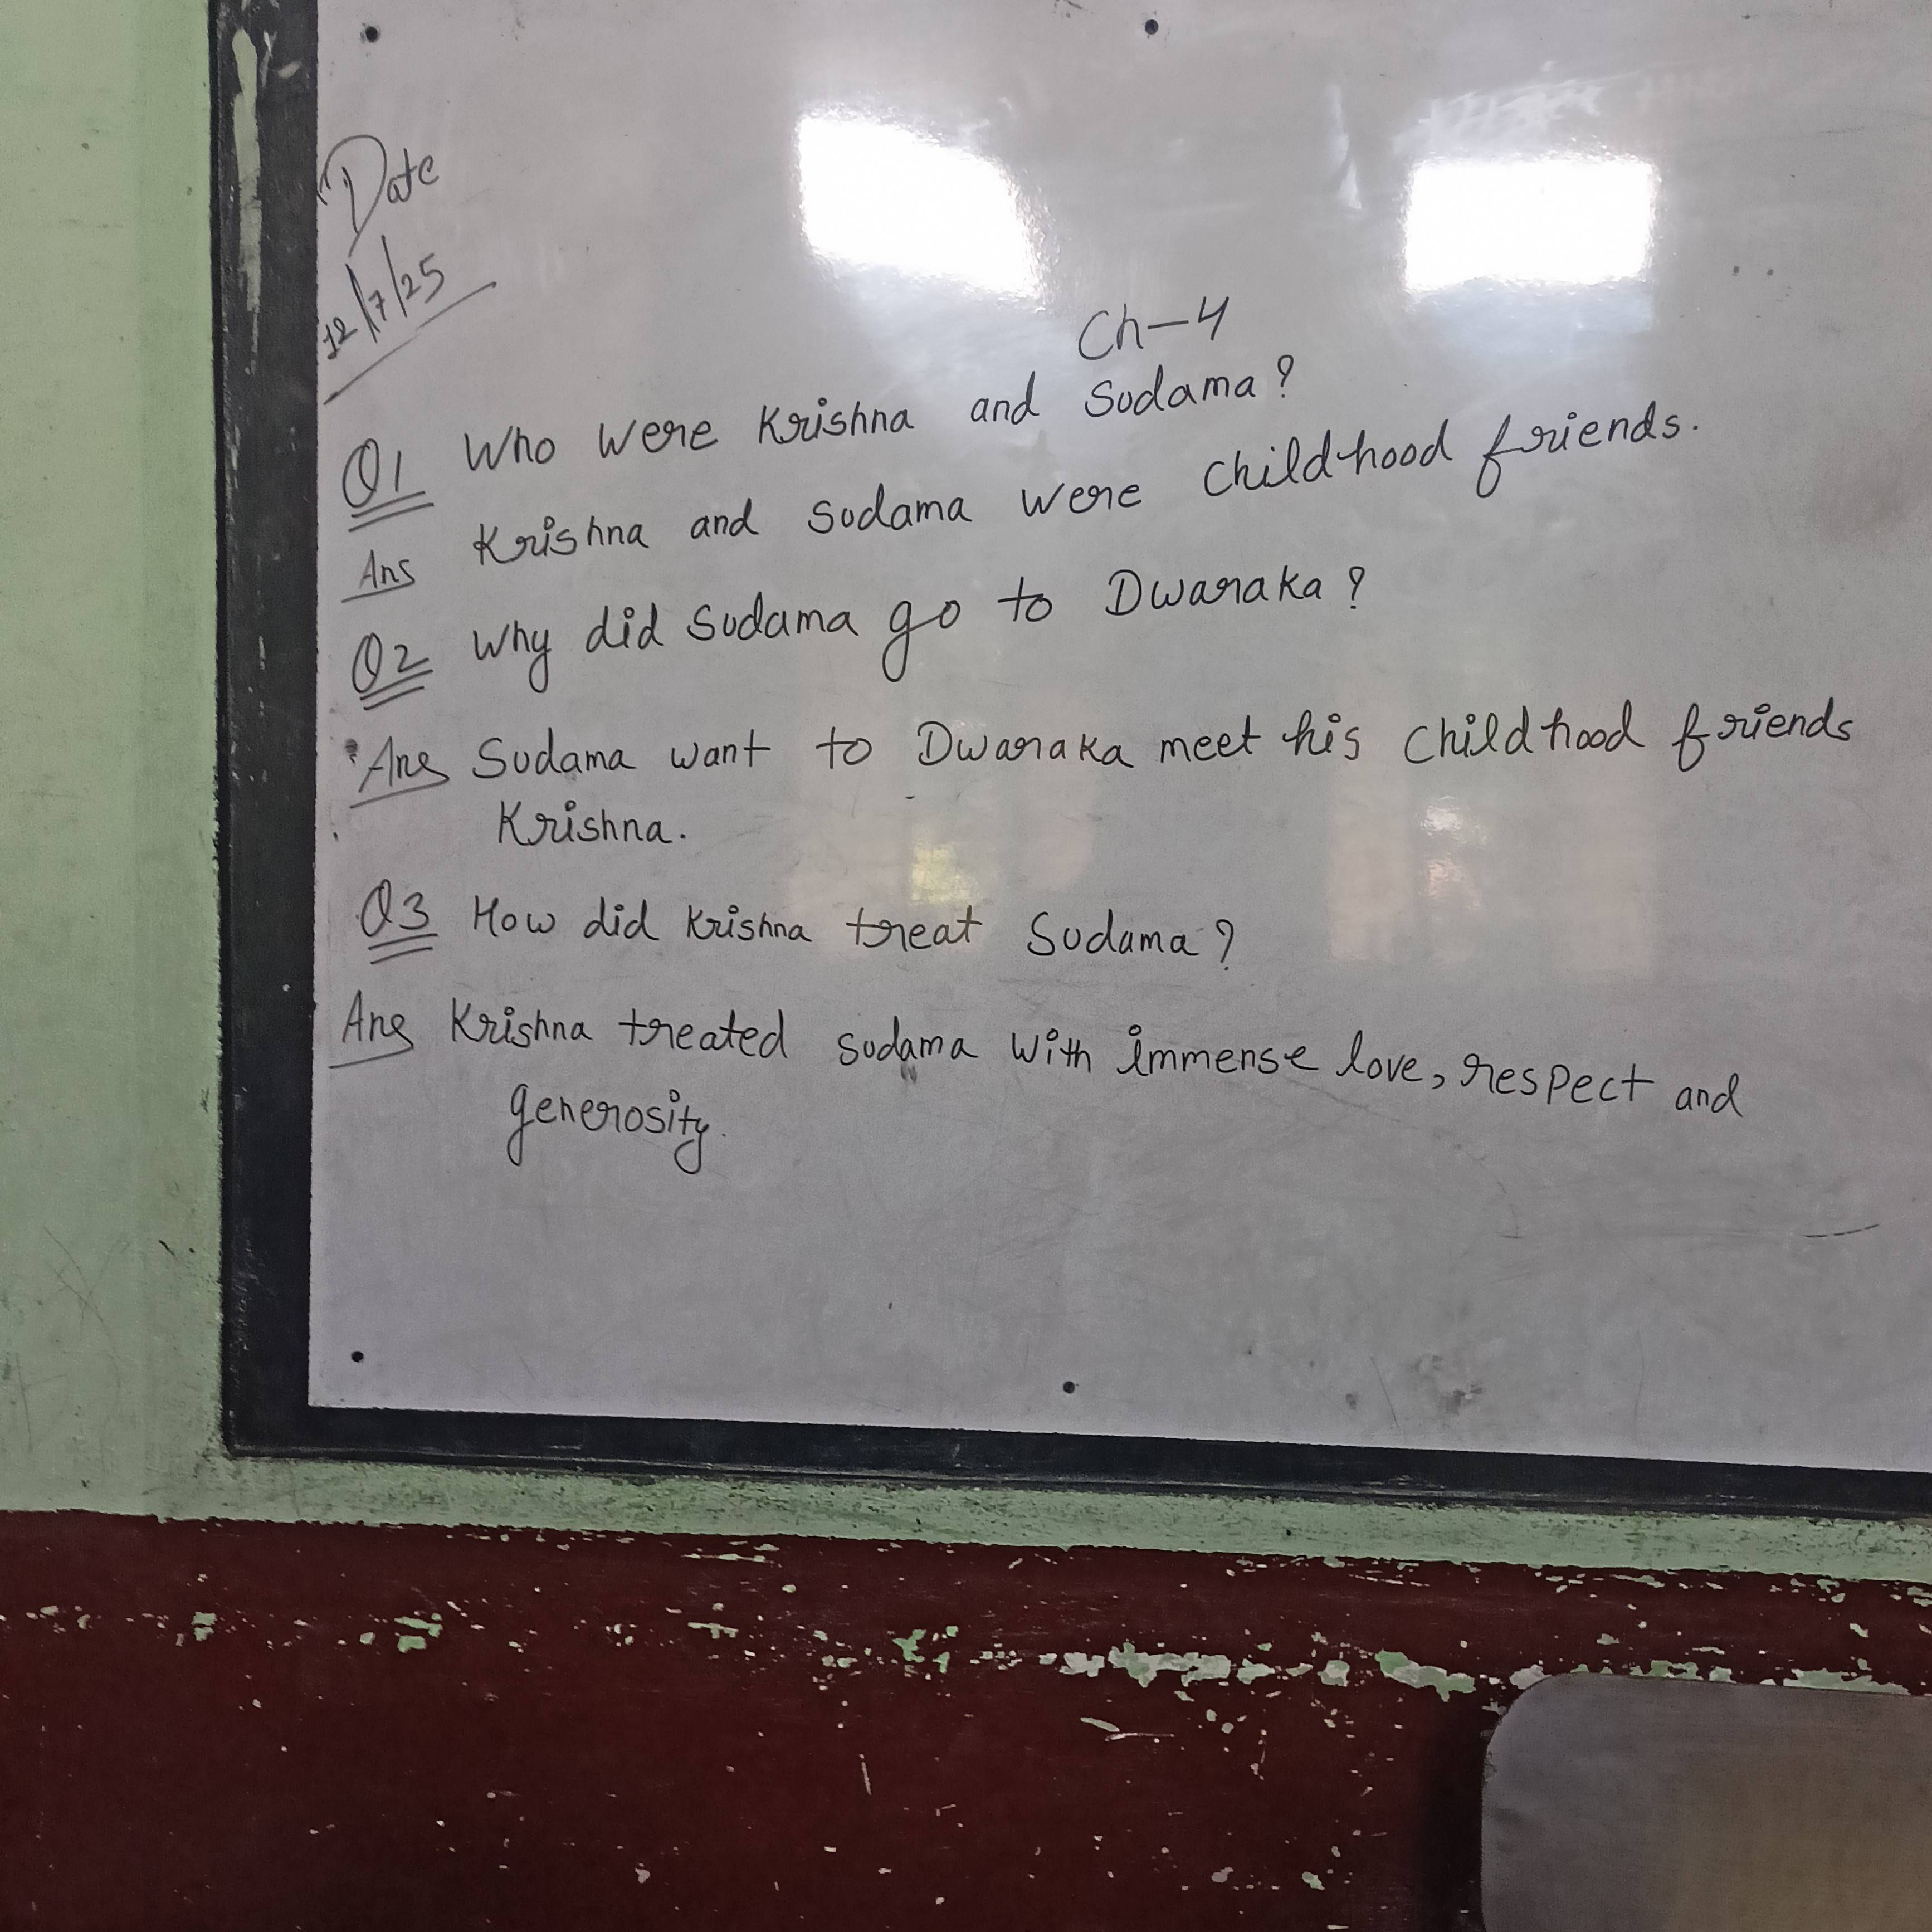 Date
12/7/25
Ch-4
Q1 Who were Krishna and Sudama?
Ans Krishna and Sudama were childhood friends.
Q2 Why did Sudama go to Dwaraka?
Ans Sudama want to Dwaraka meet his childhood friends
Krishna.
Q3 How did Krishna treat Sudama?
Ans Krishna treated Sudama with immense love, respect and
generosity.